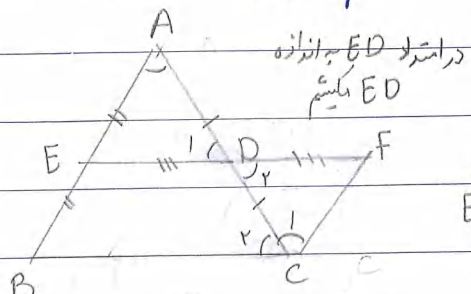 A
در امتداد ED به اندازه
ED میکشیم
E ۱ D F
۲
E
۲ ۱
B C C